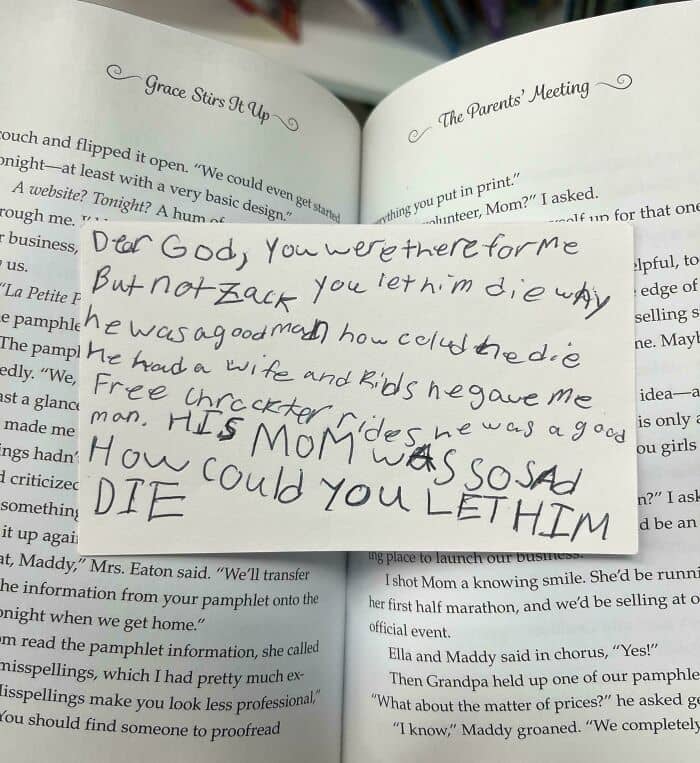 Grace Stirs It Up
couch and flipped it open. "We could even get started
at least with a very basic design."
A website? Tonight? A hum
me.
business,
us.
"La Petite
The
"We,
a
made me
criticized
something
it up
Maddy," Mrs. Eaton said. "We'll transfer
the information from your pamphlet onto the
when we get home."
read the pamphlet information, she called
misspellings, which I had pretty much ex-
make you look less professional,"
You should find someone to proofread
Dear God, You were there for Me
But not Zack You let him die why
he was a good man how colud the die
He had a wife and kids he gave me
Free chrackter rides he was a good
man. HIS MOM WAS SO SAD
HOW COULD YOU LET HIM
DIE
The Parents' Meeting
you put in print."
Mom?" I asked.
up for that one
to
edge of
selling
idea—a
is only
you girls
I
be an
place to launch our business.
I shot Mom a knowing smile. She'd be
her first half marathon, and we'd be selling at
official event.
Ella and Maddy said in chorus, "Yes!"
Then Grandpa held up one of our
"What about the matter of prices?" he asked
"I know," Maddy groaned. "We completely